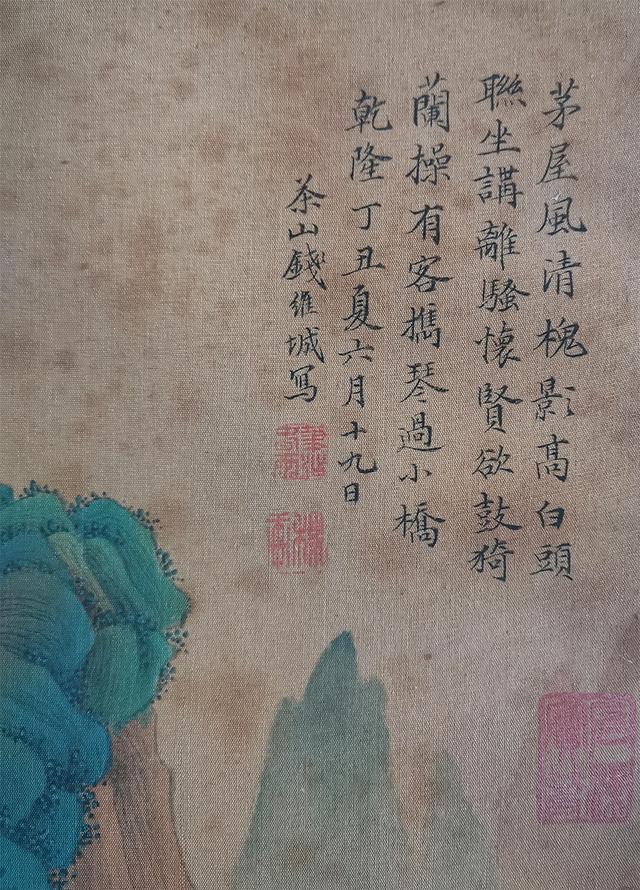 茅屋風清槐影高白頭
聯坐講離騷懷賢欲鼓猗
蘭操有客攜琴過小橋
乾隆丁丑夏六月十九日
茶山錢維城寫